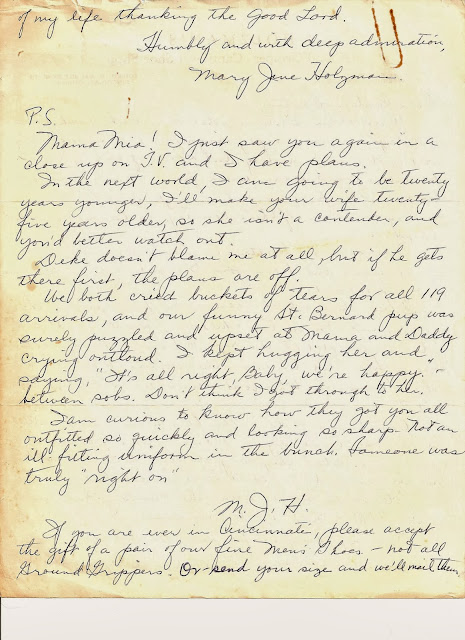 of my life thanking the Good Lord.
Humbly and with deep admiration,
Mary Jane Holzman.
P.S.
Mama Mia! I just saw you again in a
close up on T.V. and I have plans.
In the next world, I am going to be twenty
years younger, I'll make your wife twenty-
five years older, so she isn't a contender, and
you'd better watch out.
Deke doesn't blame me at all, but if he gets
there first, the plans are off.
We both cried buckets of tears for all 119
arrivals, and our funny St. Bernard pup was
surely puzzled and upset at Mama and Daddy
crying outloud. I kept hugging her and
saying, "It's all right, Baby, we're happy." -
between sobs. Don't think I got through to her.
I am curious to know how they got you all
outfitted so quickly and looking so sharp - not an
ill-fitting uniform in the bunch. Someone was
truly "right on"
M. J. H.
If you are ever in Cincinnati, please accept
the gift of a pair of our fine Men's Shoes - not all
Ground Grippers. Or send your size and we'll mail them.